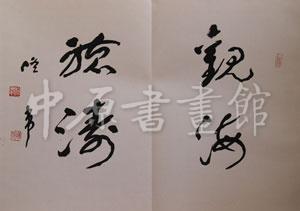 觀海
聽濤
中原書畫館